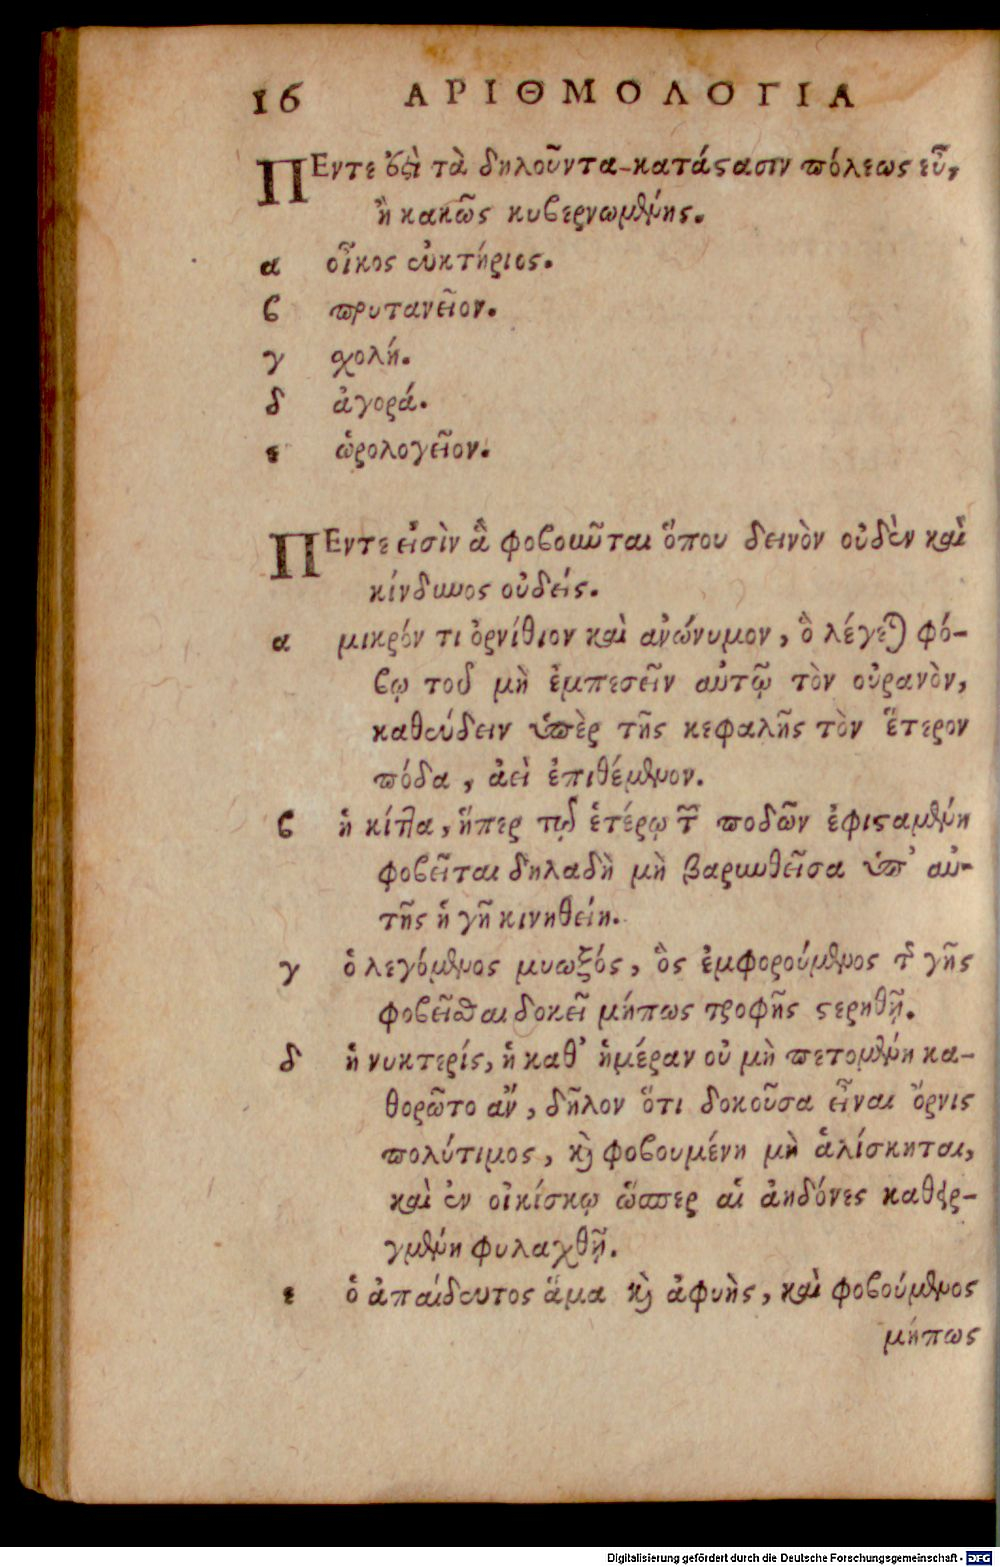 16 ΑΡΙΘΜΟΛΟΓΙΑ
ΠΕντε ἐστὶ τὰ δηλοῦντα κατάστασιν πόλεως εὖ,
ἢ κακῶς κυβερνωμένης.
α οἶκος εὐκτήριος.
β πρυτανεῖον.
γ σχολή.
δ ἀγορά.
ε ὡρολογεῖον.
ΠΕντε εἰσὶν ἃ φοβοῦνται ὅπου δεινὸν οὐδὲν καὶ
κίνδυνος οὐδείς.
α μικρόν τι ὀρνίθιον καὶ ἀνώνυμον, ὃ λέγεται φό-
βῳ τοῦ μὴ ἐμπεσεῖν αὐτῷ τὸν οὐρανὸν,
καθεύδειν ὑπὲρ τῆς κεφαλῆς τὸν ἕτερον
πόδα, ἀεὶ ἐπιθέμενον.
β ἡ κίττα, ἥπερ τῷ ἑτέρῳ τῶν ποδῶν ἐφισταμένη
φοβεῖται δηλαδὴ μὴ βαρυνθεῖσα ὑπ' αὐ-
τῆς ἡ γῆ κινηθείη.
γ ὁ λεγόμενος μυωξός, ὃς ἐμφορούμενος τῆς γῆς
φοβεῖσθαι δοκεῖ μήπως τροφῆς στερηθῇ.
δ ἡ νυκτερίς, ἡ καθ' ἡμέραν οὐ μὴ πετομένη κα-
θορῷτο ἂν, δῆλον ὅτι δοκοῦσα εἶναι ὄρνις
πολύτιμος, καὶ φοβουμένη μὴ ἁλίσκηται,
καὶ ἐν οἰκίσκῳ ὥσπερ αἱ ἀηδόνες καθειρ-
γμένη φυλαχθῇ.
ε ὁ ἀπαίδευτος ἅμα καὶ ἀφυὴς, καὶ φοβούμενος
μήπως
Digitalisierung gefördert durch die Deutsche Forschungsgemeinschaft - DFG